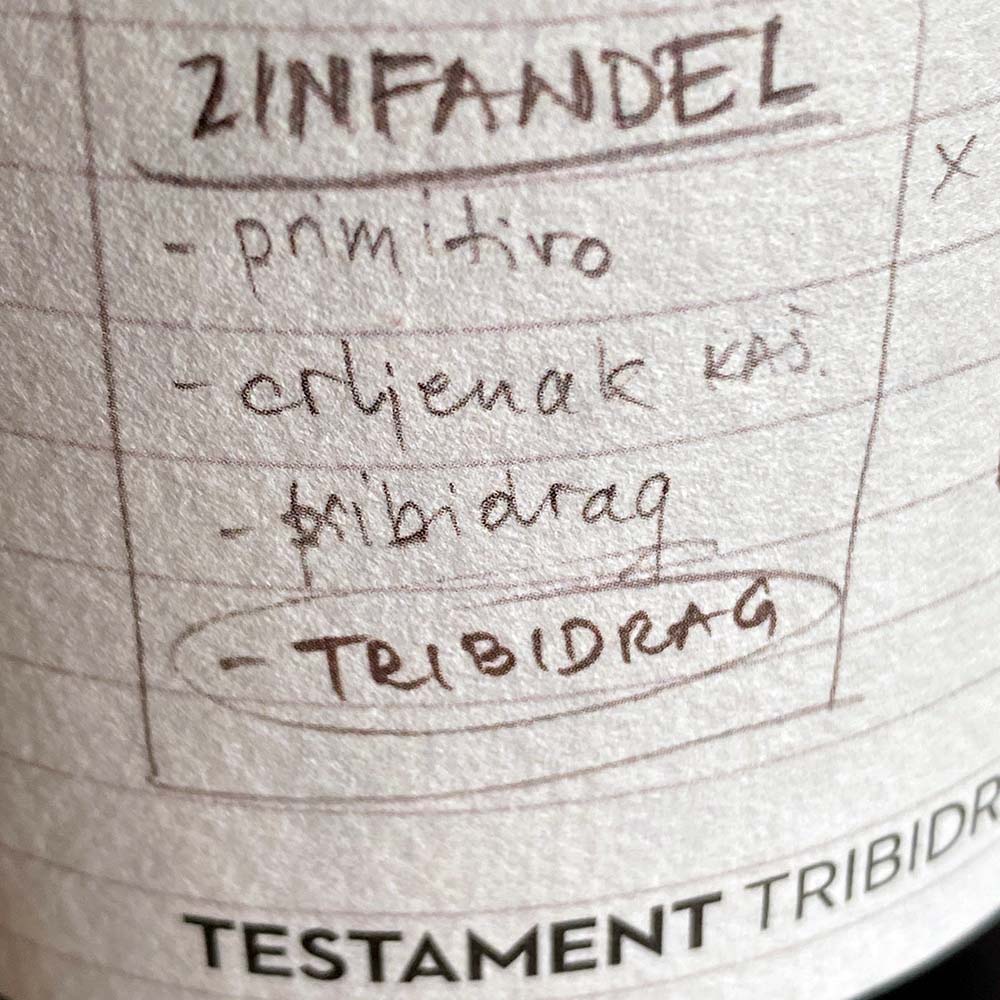 ZINFANDEL
x
- primitivo
- crljenak KAŠ.
- pribidrag
- TRIBIDRAG
TESTAMENT TRIBIDR